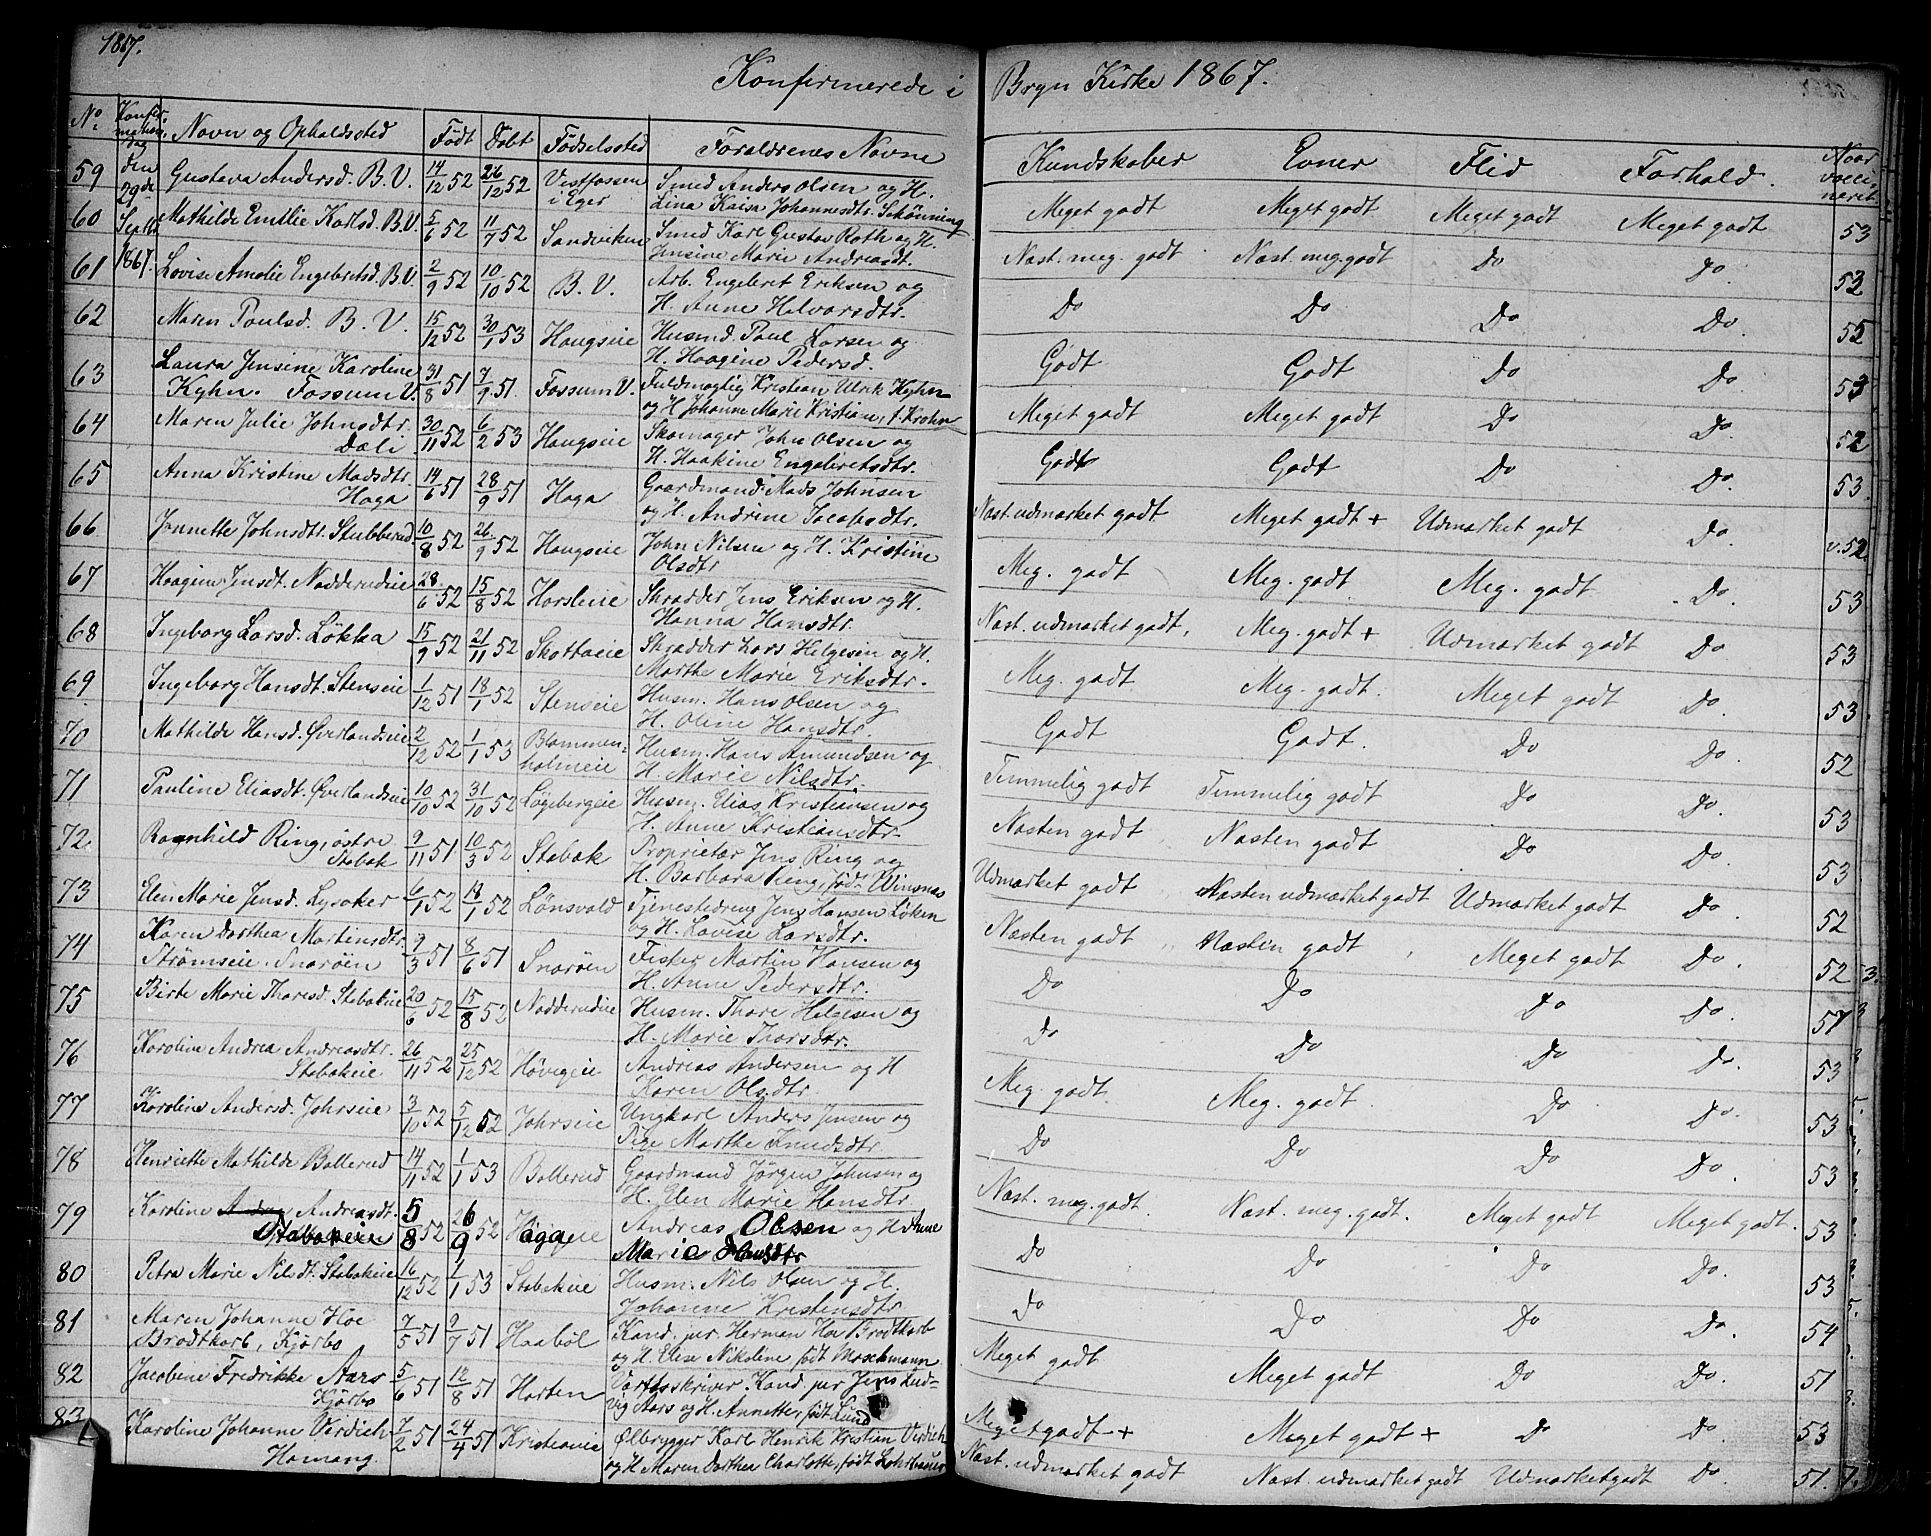 1867.
Konfirmerede i Bryn Kirke 1867.
No Konfirmations dag Navn og Opholdssted Født Døbt Fødselssted Forældrenes Navne Kundskaber Evner Flid Forhold. Naar vaccineret
den 29de Septbr 1867.
59 Gustava Andersd. B.V. 14/12 52 26/12 52 Vestfossen i Eger Smed Anders Olsen og H. Meget godt Meget godt Meget godt Meget godt 53
Lina Kaisa Johannesdtr. Schönning
60 Mathilde Emilie Karlsd. B.V. 5/6 52 11/7 52 Sandviken Smed Karl Gustav Roth og H. Næst. meg. godt Næst. meg. godt Do Do. 52
Jensine Marie Andreasdt.
61 Lovise Amalie Engebretsd. B.V. 2/9 52 10/10 52 B.V. Arb. Engebret Eriksen og Do Do Do Do. 55
H. Anne Halvorsdtr.
62 Maren Paulsd. B.V. 15/12 52 30/1 53 Haugseie Husmd. Paul Larsen og Godt Godt Do Do 53
H. Haagine Pedersd.
63 Laura Jensine Karoline 31/8 51 7/9 51 Fossum V. Fuldmægtig Kristian Ulrik Kyhn Meget godt Meget godt Do Do. 52
Kyhn. Fossum V. og H. Johanne Marie Kristian, f. Krohn
64 Maren Julie Johnsdtr. 30/11 52 6/2 53 Haugseie Skomager John Olsen og Godt Godt Do Do. 53.
Dæli H. Haakine Engebretsdtr.
65 Anna Kristine Madsdtr. 14/6 51 28/9 51 Haga Gaardmand Mads Johnsen Næst. udmærket godt Meget godt + Udmærket godt Do. v. 52.
Haga og H. Andrine Jacobsdtr.
66 Jannette Johnsdtr. Stubberud. 10/8 52 26/9 52 Haugseie John Nilsen og H. Kristine Meg. godt Meg. godt Meg. godt Do. 53
Olsdtr
67 Haagine Jensdt. Nadderudeie 28/6 52 15/8 52 Horsleie Skrædder Jens Eriksen og H. Næst. udmærket godt, Meg. godt + Udmærket godt Do 53
Hanna Hansdtr.
68 Ingeborg Larsd. Løkka 15/9 52 21/11 52 Skottaeie Skrædder Lars Helgesen og H. Meg. godt Meg. godt. Meget godt Do. 53.
Marthe Marie Eriksdtr.
69 Ingeborg Hansdt. Stenseie 1/12 51 18/1 52 Stenseie Husm. Hans Olsen og Godt Godt. Do Do. 52
H. Oline Hansdtr.
70 Mathilde Hansd. Øverlandseie 2/12 52 1/1 53 Blommenholmeie Husm. Hans Amundsen og Temmelig godt Temmelig godt Do Do. 53
H. Marie Nilsdtr.
71 Pauline Eliasdt. Øverlandseie 10/10 52 31/10 52 Løgebergeie Husm. Elias Kristiansen og Næsten godt Næsten godt Do Do. 53
H. Anne Kristiansdtr.
72. Ragnhild Ring, østre 9/11 51 10/3 52 Stabæk Proprietær Jens Ring og Udmærket godt Næsten udmærket godt Udmærket godt Do. 52
Stabæk H. Barbara Ring, født Winsnæs
73 Elen Marie Jensd. Lysaker 6/1 52 18/1 52 Lønsvald Tjenestedreng Jens Hansen Løken Næsten godt Næsten godt Meget godt Do. 52
og H. Lovise Larsdtr.
74 Karen Dorthea Martinsdtr. 9/3 51 8/6 51 Snarøen Fisker Martin Hansen og Do Do Do Do. 57
Strømseie. Snarøen H. Anne Pedersdtr.
75 Birte Marie Thoresd. Stabækeie 20/6 52 15/8 52 Nadderudeie Husm. Thore Helgesen og Do Do Do Do. 53
H. Marie Thorsdtr.
76 Karoline Andrea Andreasdtr. 26/11 52 25/12 52 Høvigeie Andreas Andersen og H Meg. godt Meg. godt Do Do. 53
Stabækeie Karen Olsdtr.
77 Karoline Andersd. Johrseie 3/10 52 5/12 52 Johrseie Ungkarl Anders Jensen og Do Do Do Do. 53
Pige Marthe Knudsdtr.
78 Henriette Mathilde Ballerud 14/11 52 1/1 53 Ballerud Gaardmand Jørgen Johnsen og Næst. meg. godt. Næst. meg. godt. Meget godt Meget godt. 53
H. Elen Marie Hansdtr
79 Karoline Andrea Andreasdt. 5/8 52 26/9 52 Hagaeie Andreas Olsen og H Anne Do Do Do Do. 53
Stabækeie Marie Hansdtr
80 Petra Marie Nilsdt. Stabækeie 16/12 52 1/1 53 Stabækeie Husm. Nils Olsen og H. Do Do Do Do. 54
Johanne Kristensdtr
81 Maren Johanne Hoe 7/5 51 9/7 51 Haabøl Kand. jur. Herman Hoe Brodtkorb Meget godt Meget godt Do Do. 51
Brodtkorb, Kjørbo og H. Elise Nikoline, født Moschmann
82 Jacobine Fredrikke Aars 5/6 51 12/8 51 Horten Værftsskriver. Kand. jur Jens Lud- Meget godt + Meget godt + Do Do. 53
Kjørbo vig Aars og H. Annette, født Lund
83 Karoline Johanne Verdich 7/2 51 24/4 51 Kristiania Ølbrygger Karl Henrik Kristian Verdich Næst. udmærket godt Næst. udmærket godt Udmærket godt Do. 51.
Hamang. og H. Maren Dorthea Charlotte, født Lohrbauer